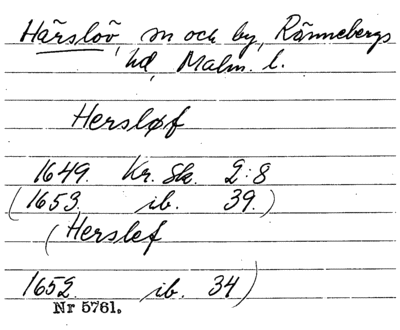 Härslöv, sn och by, Rönnebergs
hd, Malm. l.
Hersløf
1649. Kr. Sk. 2:8
(1653. ib. 39.)
(Herslef
1652. ib. 34)
Nr 5761.